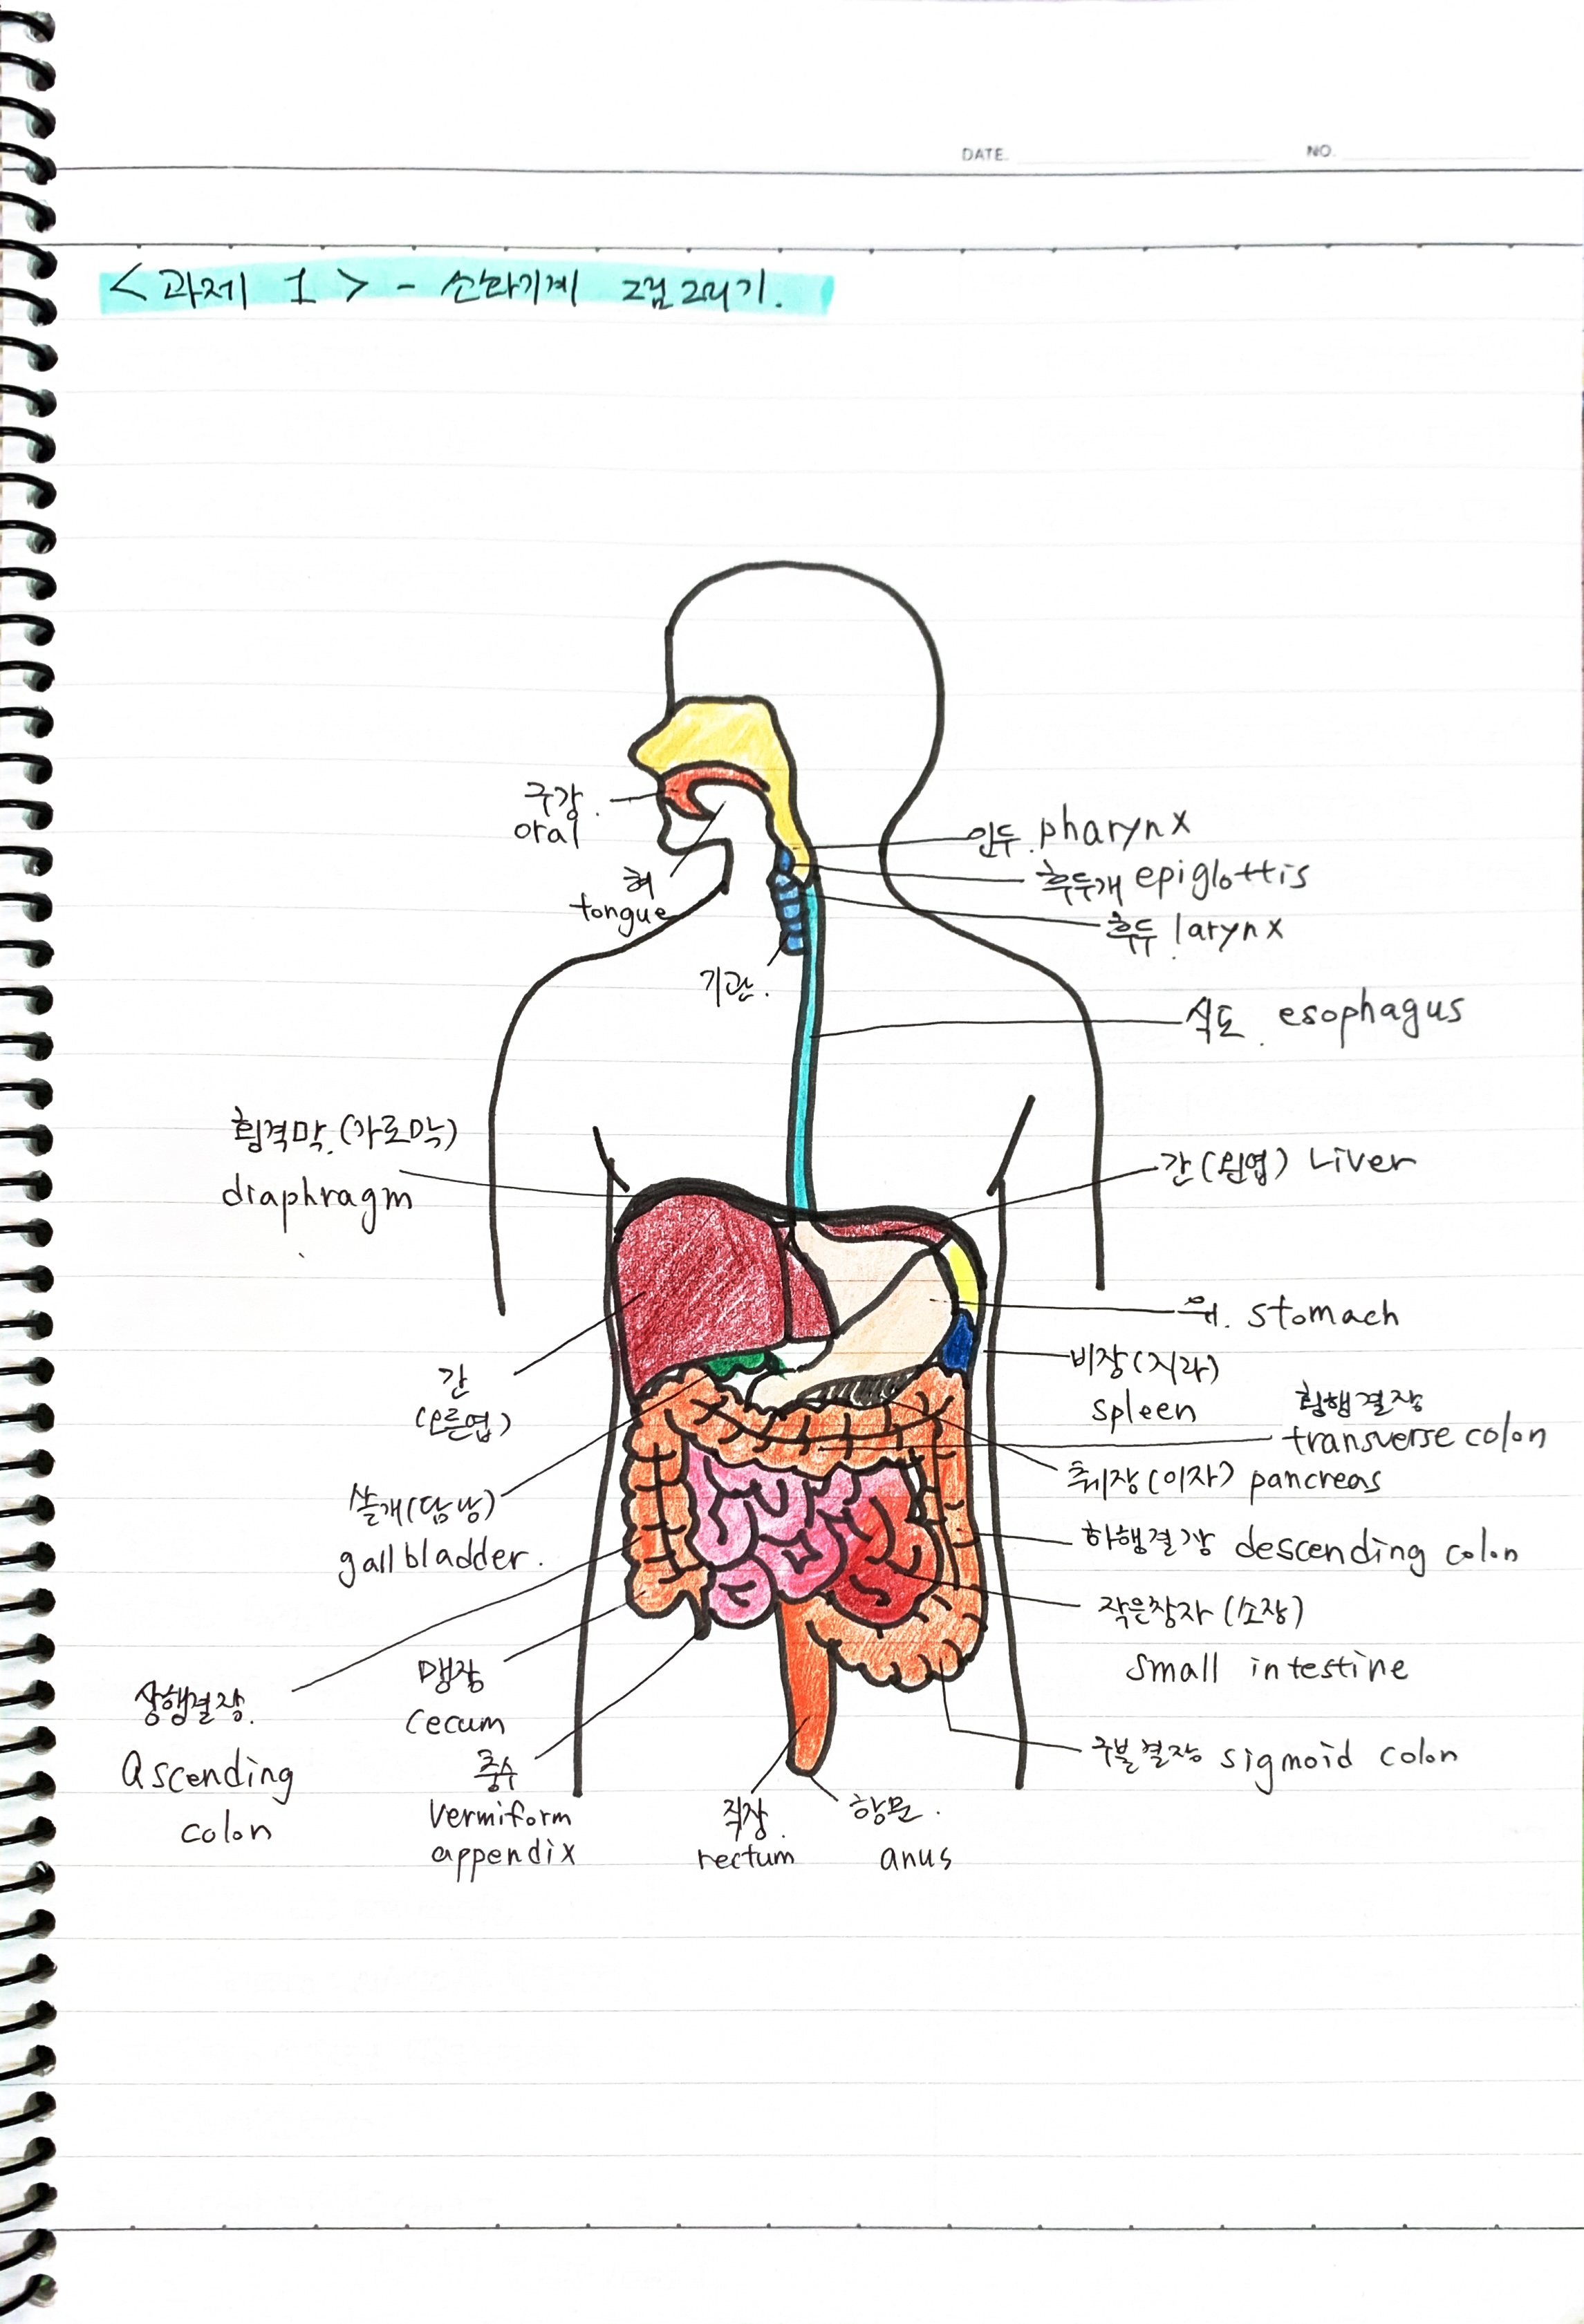 DATE.
NO.
<과제 1> - 소화기계 그림 그리기.
구강.
oral
혀
tongue
기관.
인두. pharynx
후두개 epiglottis
후두 larynx
식도. esophagus
횡격막.(가로막)
diaphragm
간(왼엽) Liver
위. stomach
비장(지라)
spleen
횡행결장
transverse colon
췌장(이자) pancreas
하행결장 descending colon
작은창자 (소장)
small intestine
구불결장 sigmoid colon
간
(오른엽)
쓸개(담낭)
gall bladder.
상행결장.
ascending
colon
맹장
cecum
충수
vermiform
appendix
직장.
rectum
항문.
anus